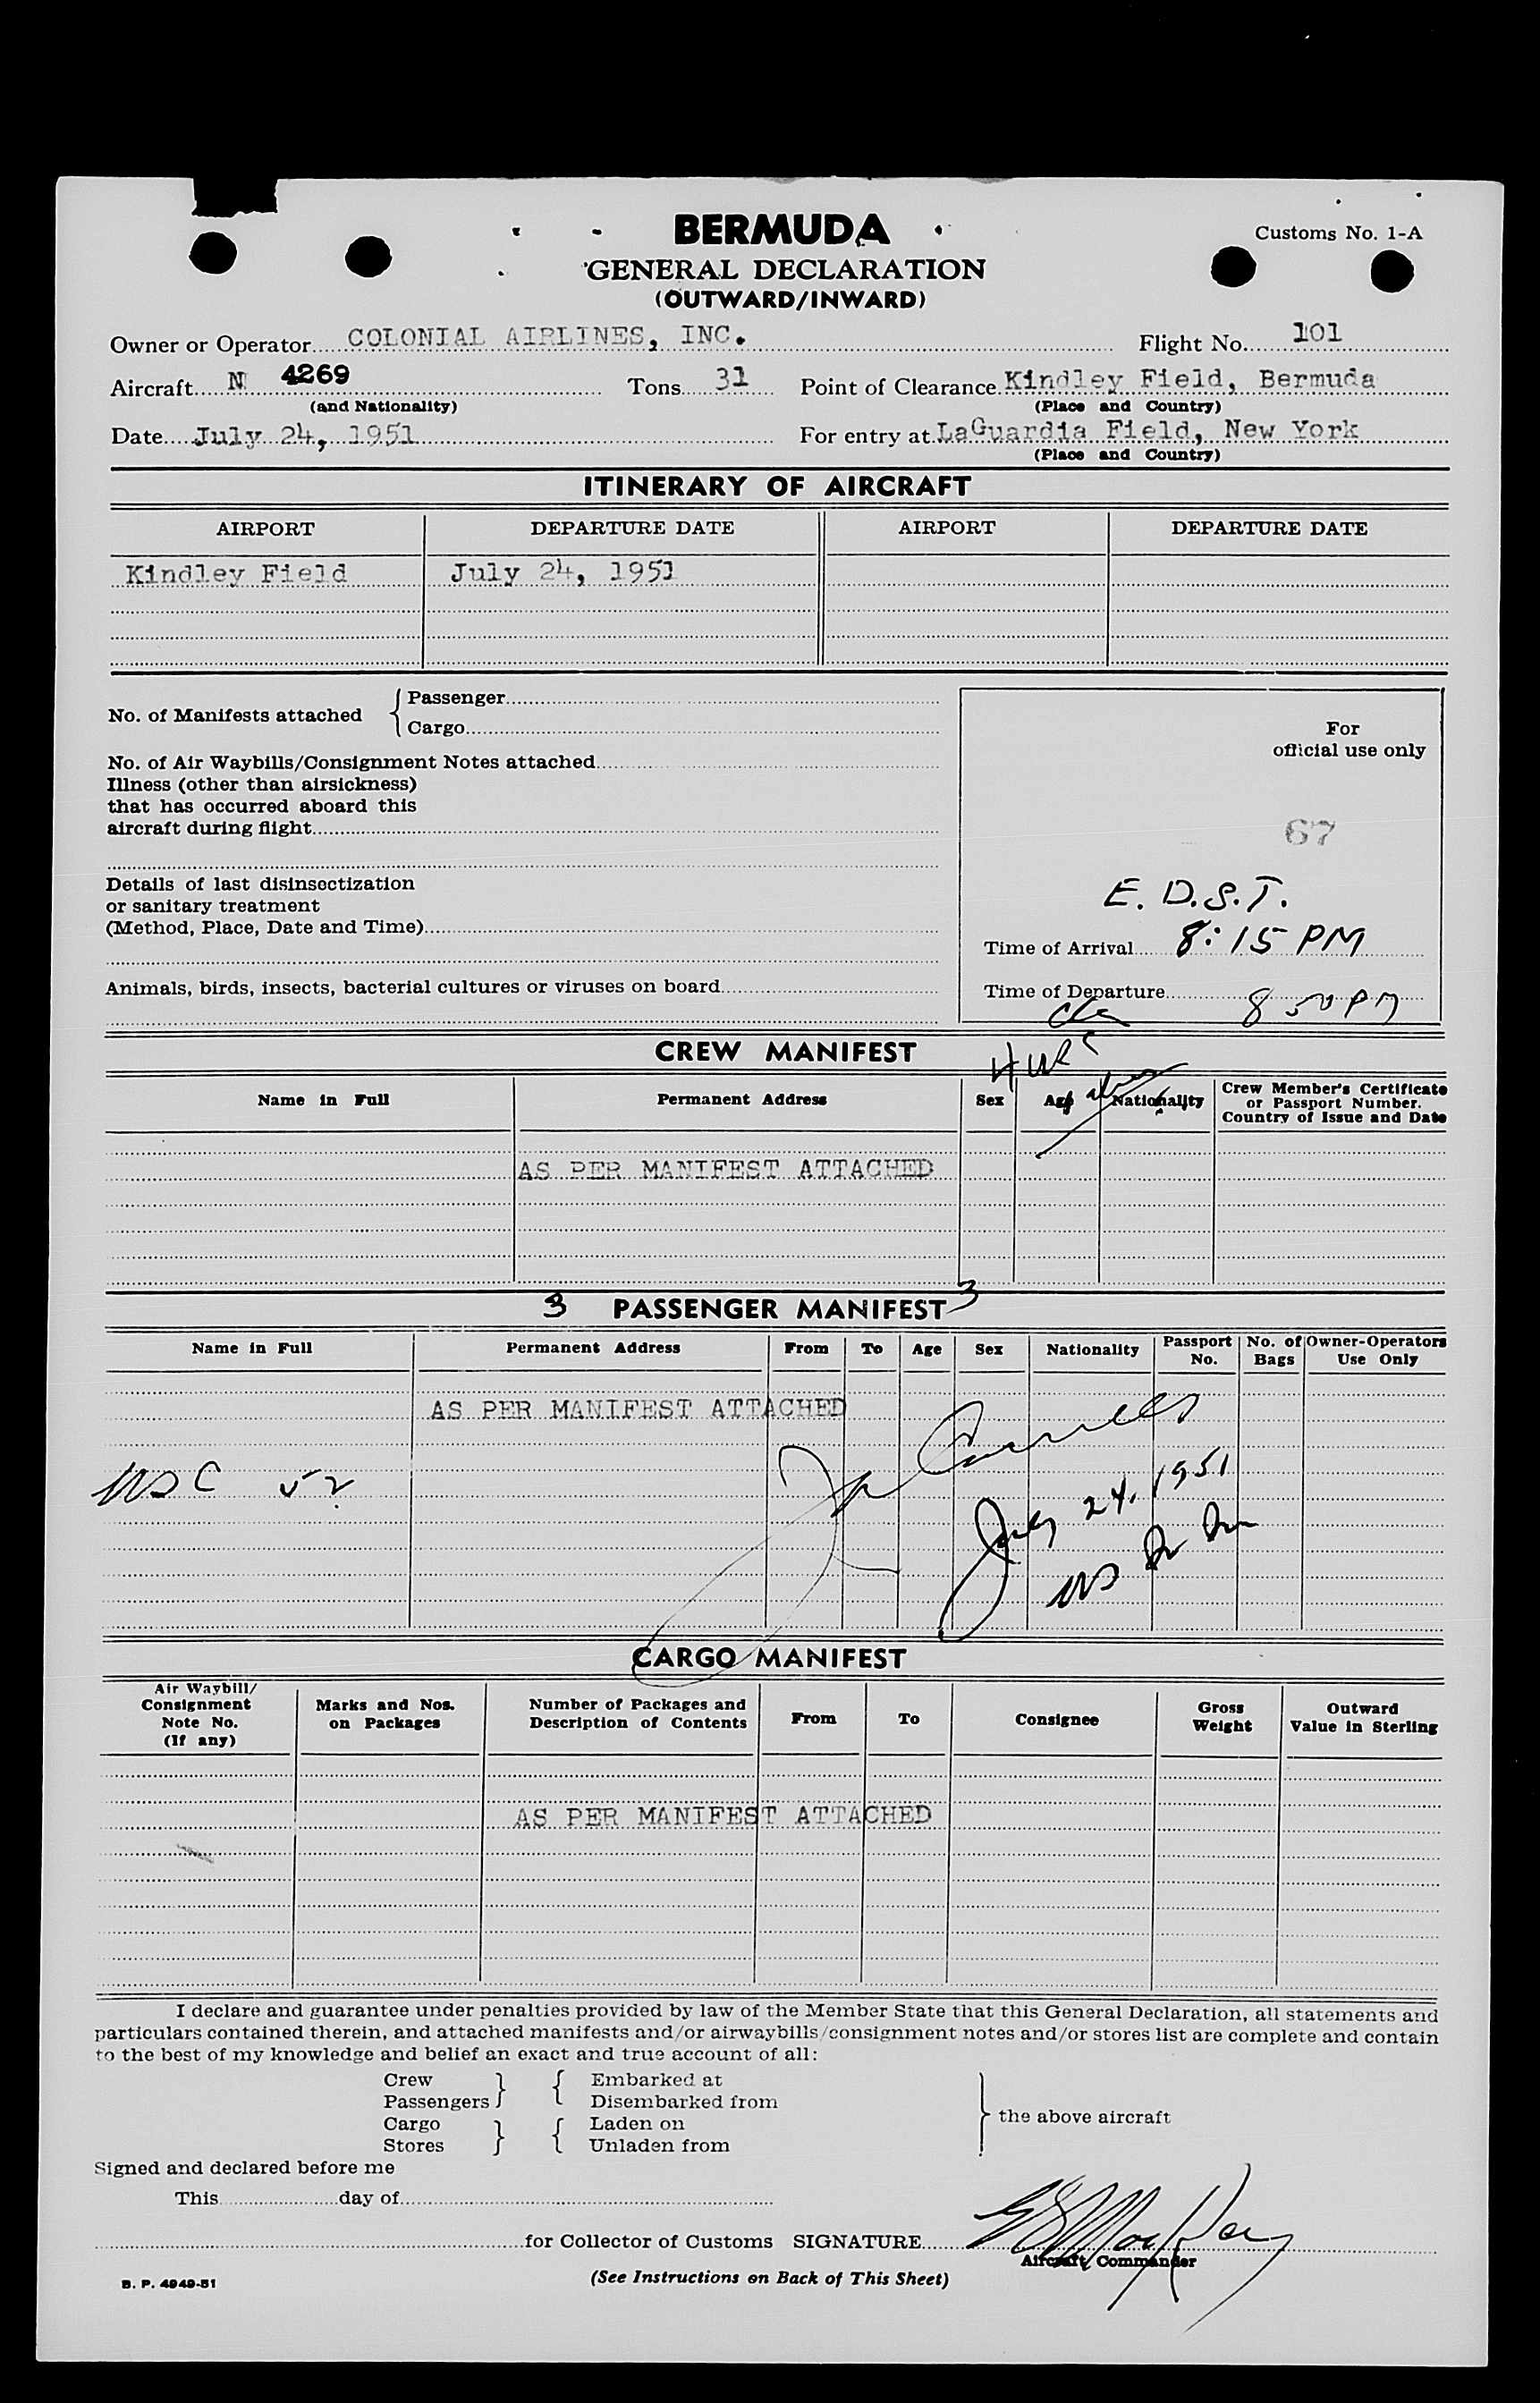 BERMUDA
Customs No. 1-A
GENERAL DECLARATION
(OUTWARD/INWARD)
Owner or Operator COLONIAL AIRLINES, INC. Flight No. 101
Aircraft N 4269 Tons 31 Point of Clearance Kindley Field, Bermuda
(and Nationality) (Place and Country)
Date July 24, 1951 For entry at LaGuardia Field, New York
(Place and Country)
ITINERARY OF AIRCRAFT
AIRPORT DEPARTURE DATE AIRPORT DEPARTURE DATE
Kindley Field July 24, 1951
No. of Manifests attached { Passenger
Cargo
For
official use only
No. of Air Waybills/Consignment Notes attached
Illness (other than airsickness)
that has occurred aboard this
aircraft during flight
67
Details of last disinsectization
or sanitary treatment
(Method, Place, Date and Time)
E. D.S.T.
Time of Arrival 8:15 PM
Animals, birds, insects, bacterial cultures or viruses on board
Time of Departure 8 50 PM
CREW MANIFEST
Name in Full Permanent Address Sex Age Nationality Crew Member's Certificate
or Passport Number.
Country of Issue and Date
AS PER MANIFEST ATTACHED
3 PASSENGER MANIFEST 3
Name in Full Permanent Address From To Age Sex Nationality Passport No. No. of Bags Owner-Operators Use Only
AS PER MANIFEST ATTACHED
USC 52
July 24, 1951
CARGO MANIFEST
Air Waybill/
Consignment
Note No.
(If any)
Marks and Nos.
on Packages
Number of Packages and
Description of Contents
From To Consignee
Gross
Weight
Outward
Value in Sterling
AS PER MANIFEST ATTACHED
I declare and guarantee under penalties provided by law of the Member State that this General Declaration, all statements and
particulars contained therein, and attached manifests and/or airwaybills/consignment notes and/or stores list are complete and contain
to the best of my knowledge and belief an exact and true account of all:
Crew } { Embarked at
Passengers } { Disembarked from
Cargo } { Laden on } the above aircraft
Stores } { Unladen from
Signed and declared before me
This day of
for Collector of Customs SIGNATURE
Aircraft Commander
B. P. 4949-51
(See Instructions on Back of This Sheet)